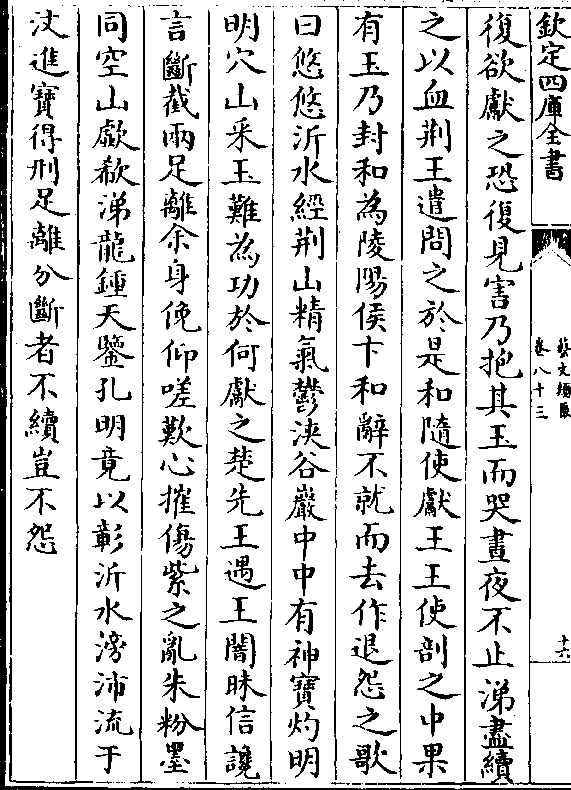 欽定四庫全書
藝文類聚
卷八十三
十六
復欲獻之恐復見害乃抱其玉而哭晝夜不止涕盡續
之以血荆王遣問之於是和隨使獻王王使剖之中果
有玉乃封和為陵陽侯卞和辭不就而去作退怨之歌
曰悠悠沂水經荆山精氣鬱泱谷巖中中有神寶灼明
明穴山采玉難為功於何獻之楚先王遇王闇昧信讒
言斷截兩足離余身俛仰嗟歎心摧傷紫之亂朱粉墨
同空山歔欷涕龍鍾天鑒孔明竟以彰沂水滂沛流于
汶進寶得刑足離分斷者不續豈不怨